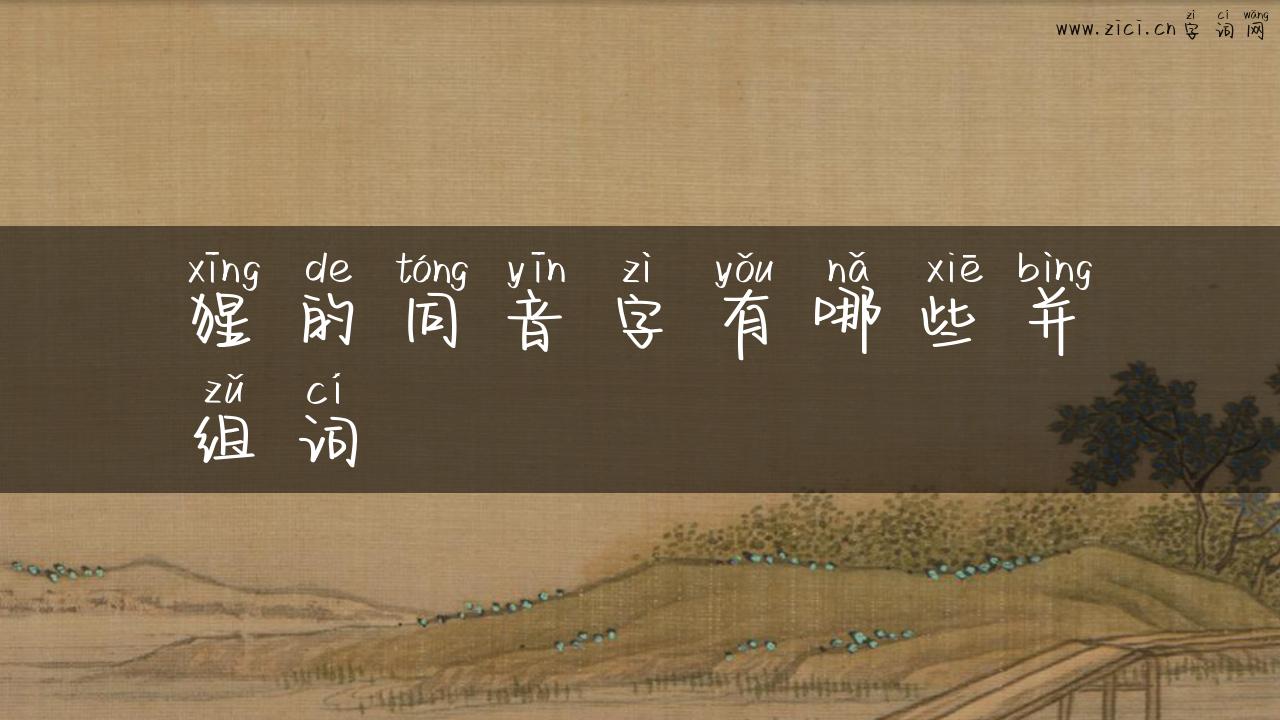 zì cí wǎng
www.zici.cn字词网
xīng de tóng yīn zì yǒu nǎ xiē bìng
猩的同音字有哪些并
zǔ cí
组词